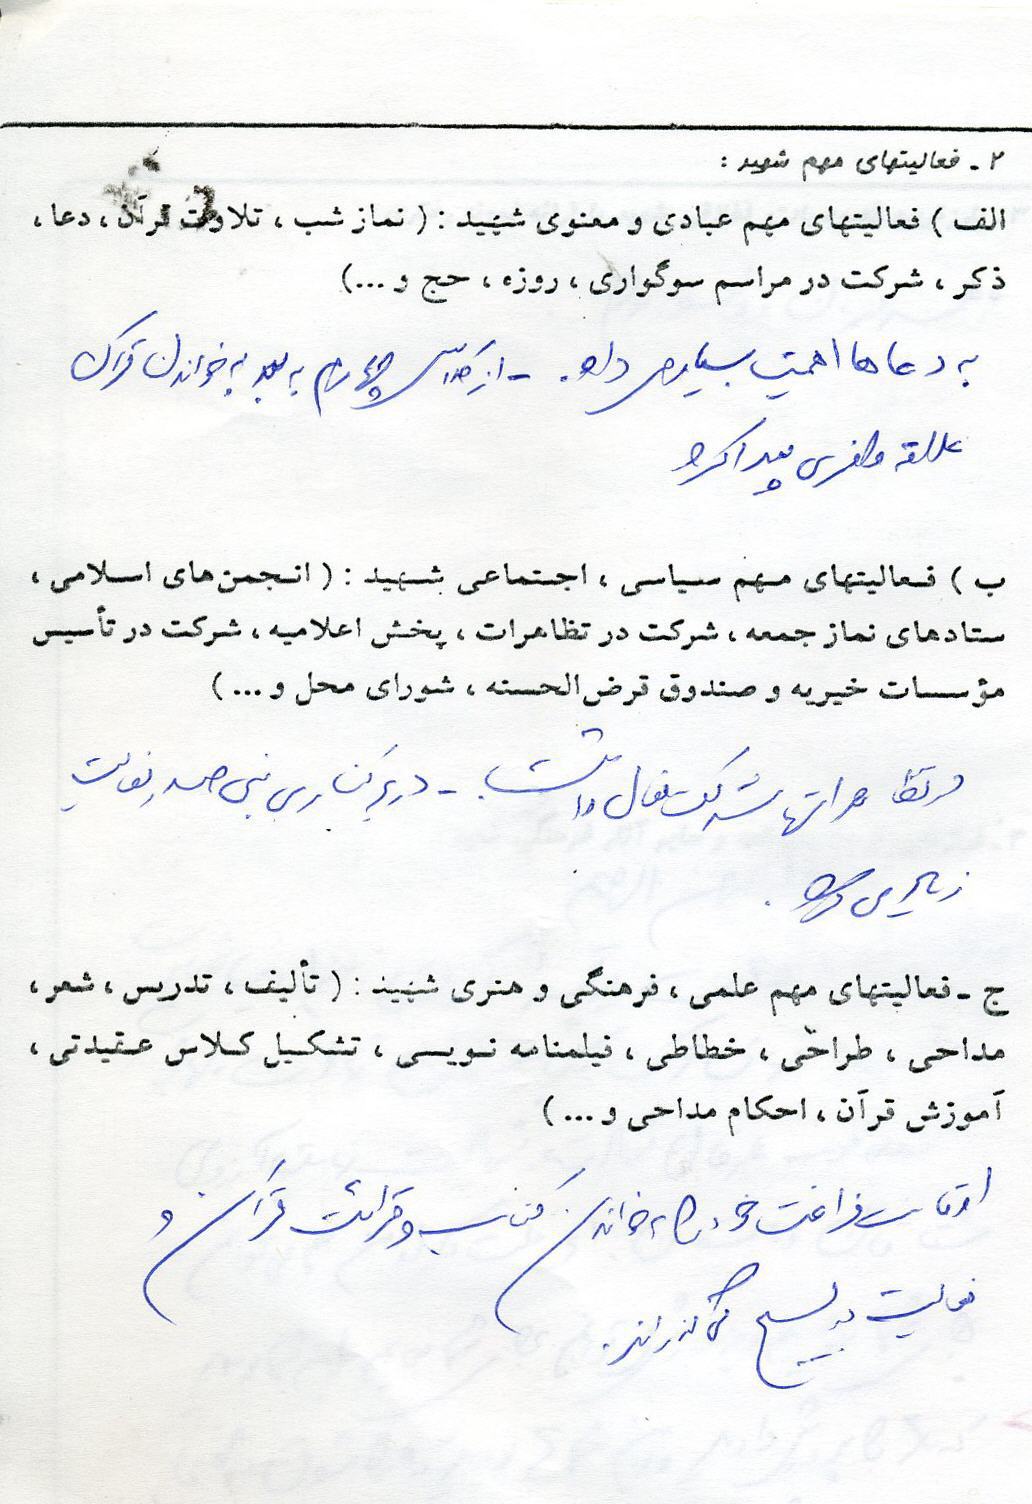 ۲ ـ فعالیتهای مهم شهید :
الف ) فعالیتهای مهم عبادی و معنوی شهید : ( نماز شب ، تلاوت قرآن ، دعا ،
ذکر ، شرکت در مراسم سوگواری ، روزه ، حج و ...)
به دعاها اهمیت بسیاری داد . ـ از کلاس چهارم به بعد به خواندن قرآن
علاقه وافری پیدا کرد
ب ) فعالیتهای مهم سیاسی ، اجتماعی شهید : ( انجمن‌های اسلامی ،
ستادهای نماز جمعه ، شرکت در تظاهرات ، پخش اعلامیه ، شرکت در تأسیس
مؤسسات خیریه و صندوق قرض‌الحسنه ، شورای محل و ... )
در تظاهراتها شرکت فعال داشت ـ در برکناری بنی صدر فعالیت
زیادی کرد .
ج ـ فعالیتهای مهم علمی ، فرهنگی و هنری شهید : ( تألیف ، تدریس ، شعر ،
مداحی ، طراحّی ، خطاطی ، فیلمنامه نویسی ، تشکیل کلاس عقیدتی ،
آموزش قرآن ، احکام مداحی و ... )
اوقات فراغت خود را به خواندن کتاب و قرائت قرآن و
فعالیت در بسیج می گذراند .